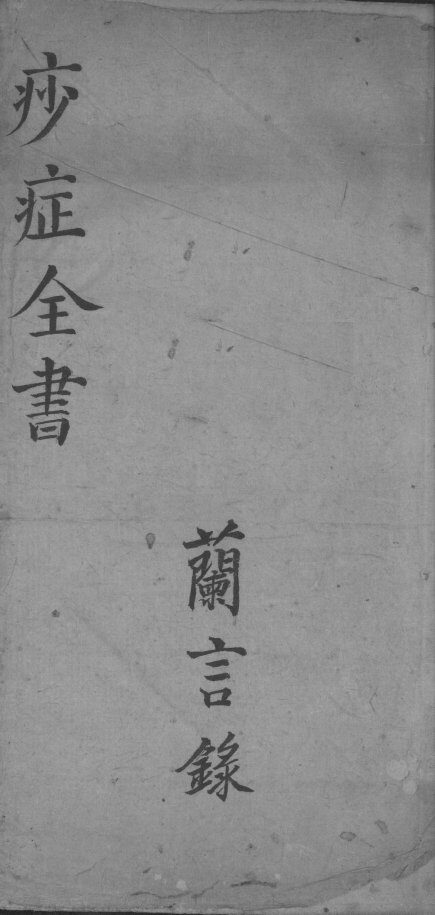 痧症全書
蘭言錄